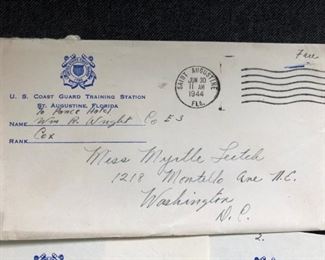 Free
SAINT AUGUSTINE
JUN 20
11 AM
1944
FLA.
U. S. COAST GUARD TRAINING STATION
ST. AUGUSTINE, FLORIDA
To Ponce Hotel
NAME Wm. R. Wright Co E3
RANK Cox
Miss Myrtle Leitch
1218 Montello Ave N.E.
Washington
D.C.
2.